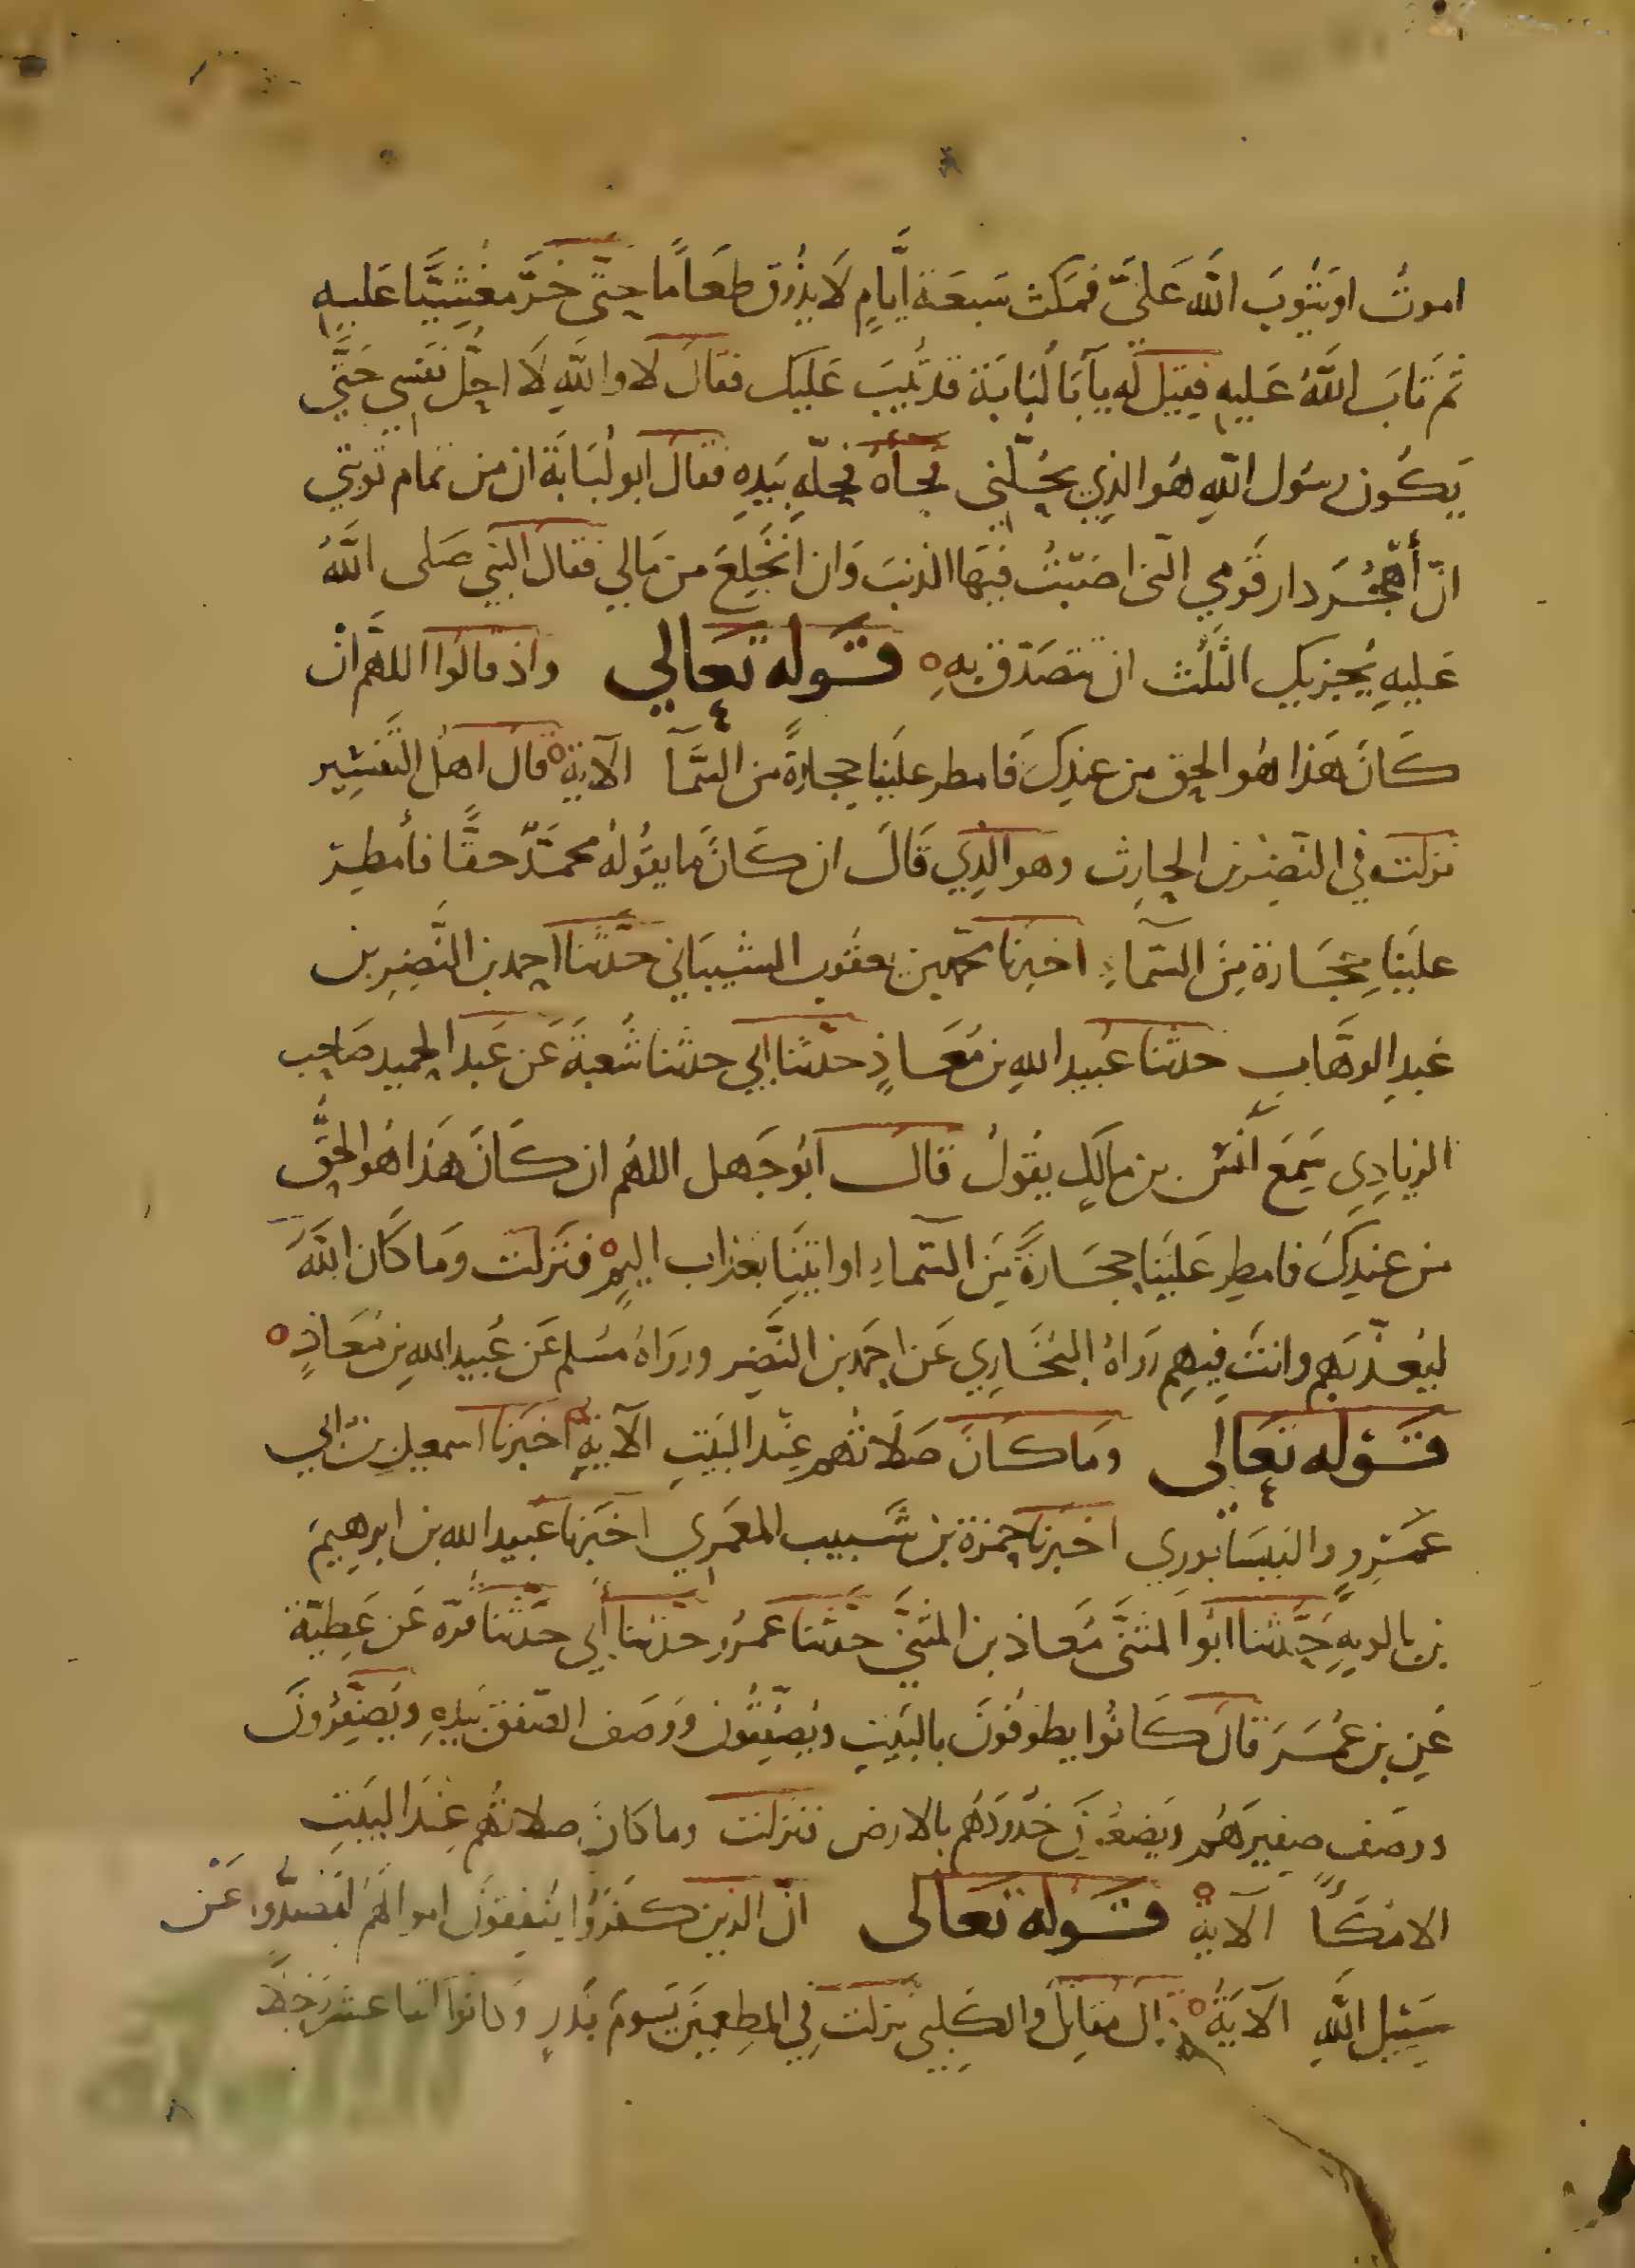 اموتُ او يتُوبَ اللَّه عَليَّ فمكث سَبعَة ايَّامٍ لَا يذُوق طعَامًا حتّى خرَّ مغشِيًّا عَليهِ
ثم تابَ اللَّهُ عَليهِ فقيل له يآبا لُبابَة قد تيبَ عَليك فقالَ لا واللَّهِ لَا احلُّ نفسِي حَتَّى
يَكُون رسُول اللَّهِ هُو الذي يحُلّني فجآهُ فحلّهِ بيَدِهِ فقالَ ابو لُبَابَة ان من تمام توبتي
انّ أهجُرَ دار قَومي التى اصَبتُ فيهَا الذنبَ وَان انخَلِعَ من مَالي فقالَ النبي صَلى اللَّهُ
عَليهِ يُجزيك الثلُث ان تتصَدّق بهِ ه قوله تعَالي واذ قالوُا اللهُمَّ انْ
كَانَ هَذا هُو الحق من عندِكَ فامطر علينا حجارةً من السَّمآ الآية ه قال اهلُ التفسِير
نزلت في النَّضر بن الحارِث وهو الذِي قَالَ ان كَانَ ما يقُولهُ محمدٌ حقًّا فأمطِرْ
علينَا حِجَارة مِنَ السَّماءِ اخبرنا محمد بن يعقوب الشيبَاني حَدَّثنا احمد بن النَّضِر بن
عَبدِ الوهَّاب حدثنا عُبيد اللهِ بن مُعَاذٍ حدَّثنا ابي حدثنا شُعبَةَ عَن عَبد الحميد صَاحِب
الزيادِي سَمِعَ أنَس بن مالكٍ يقُولُ قالَ ابُو جَهل اللهُم ان كَانَ هَذا هُو الحَقَّ
من عندِكَ فامطِر عَلينَا حِجَارةً مِنَ السَّماءِ او ايتنَا بعذاب اليمٍ ه فنَزلت ومَا كَان اللَّهَ
ليُعذّبهُم وانتَ فيهِم رَواهُ البُخَارِي عَن احمَد بن النَّضر وروَاهُ مسُلم عَن عُبيد اللهِ بن مُعَاذٍ ه
قوله تعَالى ومَا كانَ صَلَاتهُم عِنْد البَيتِ الآية ه اخبَرنا اسمعيل بن ابي
عَمْرٍو والنيسَابُوري اخبرنا حمزة بن شَبيب المعمَري اخبَرنا عُبيد الله بن ابرهِيمَ
بن بالويهِ حَدَّثنا ابُو المثنَّى مُعَاذ بن المثنَّى حدَّثنا عَمرُو حدَّثنا أبي حدَّثنا قرّة عَن عَطِيّة
عَنِ بن عُمَرَ قالَ كَانُوا يطوفُونَ بالبَيتِ ويُصَفّقُون ووصَف الصّفق بيَدِهِ ويُصَفِّرُونَ
ووصَف صفيرَهُمْ ويَضعُونَ خُدُودَهُم بالارض فنَزلت وما كانَ صلاتهُم عِنْدَ البَيتِ
الا مُكَآً الآية ه قوله تعَالى انّ الذين كفرُوا ينفِقونَ اموالهُم ليصُدُّوا عَنْ
سَبيل اللَّهِ الآيَة ه قال مقاتل والكَلبِي نزلت في المُطعِمِينَ يَومَ بَدرٍ وكانوا اثنا عشرَ رَجُلًا